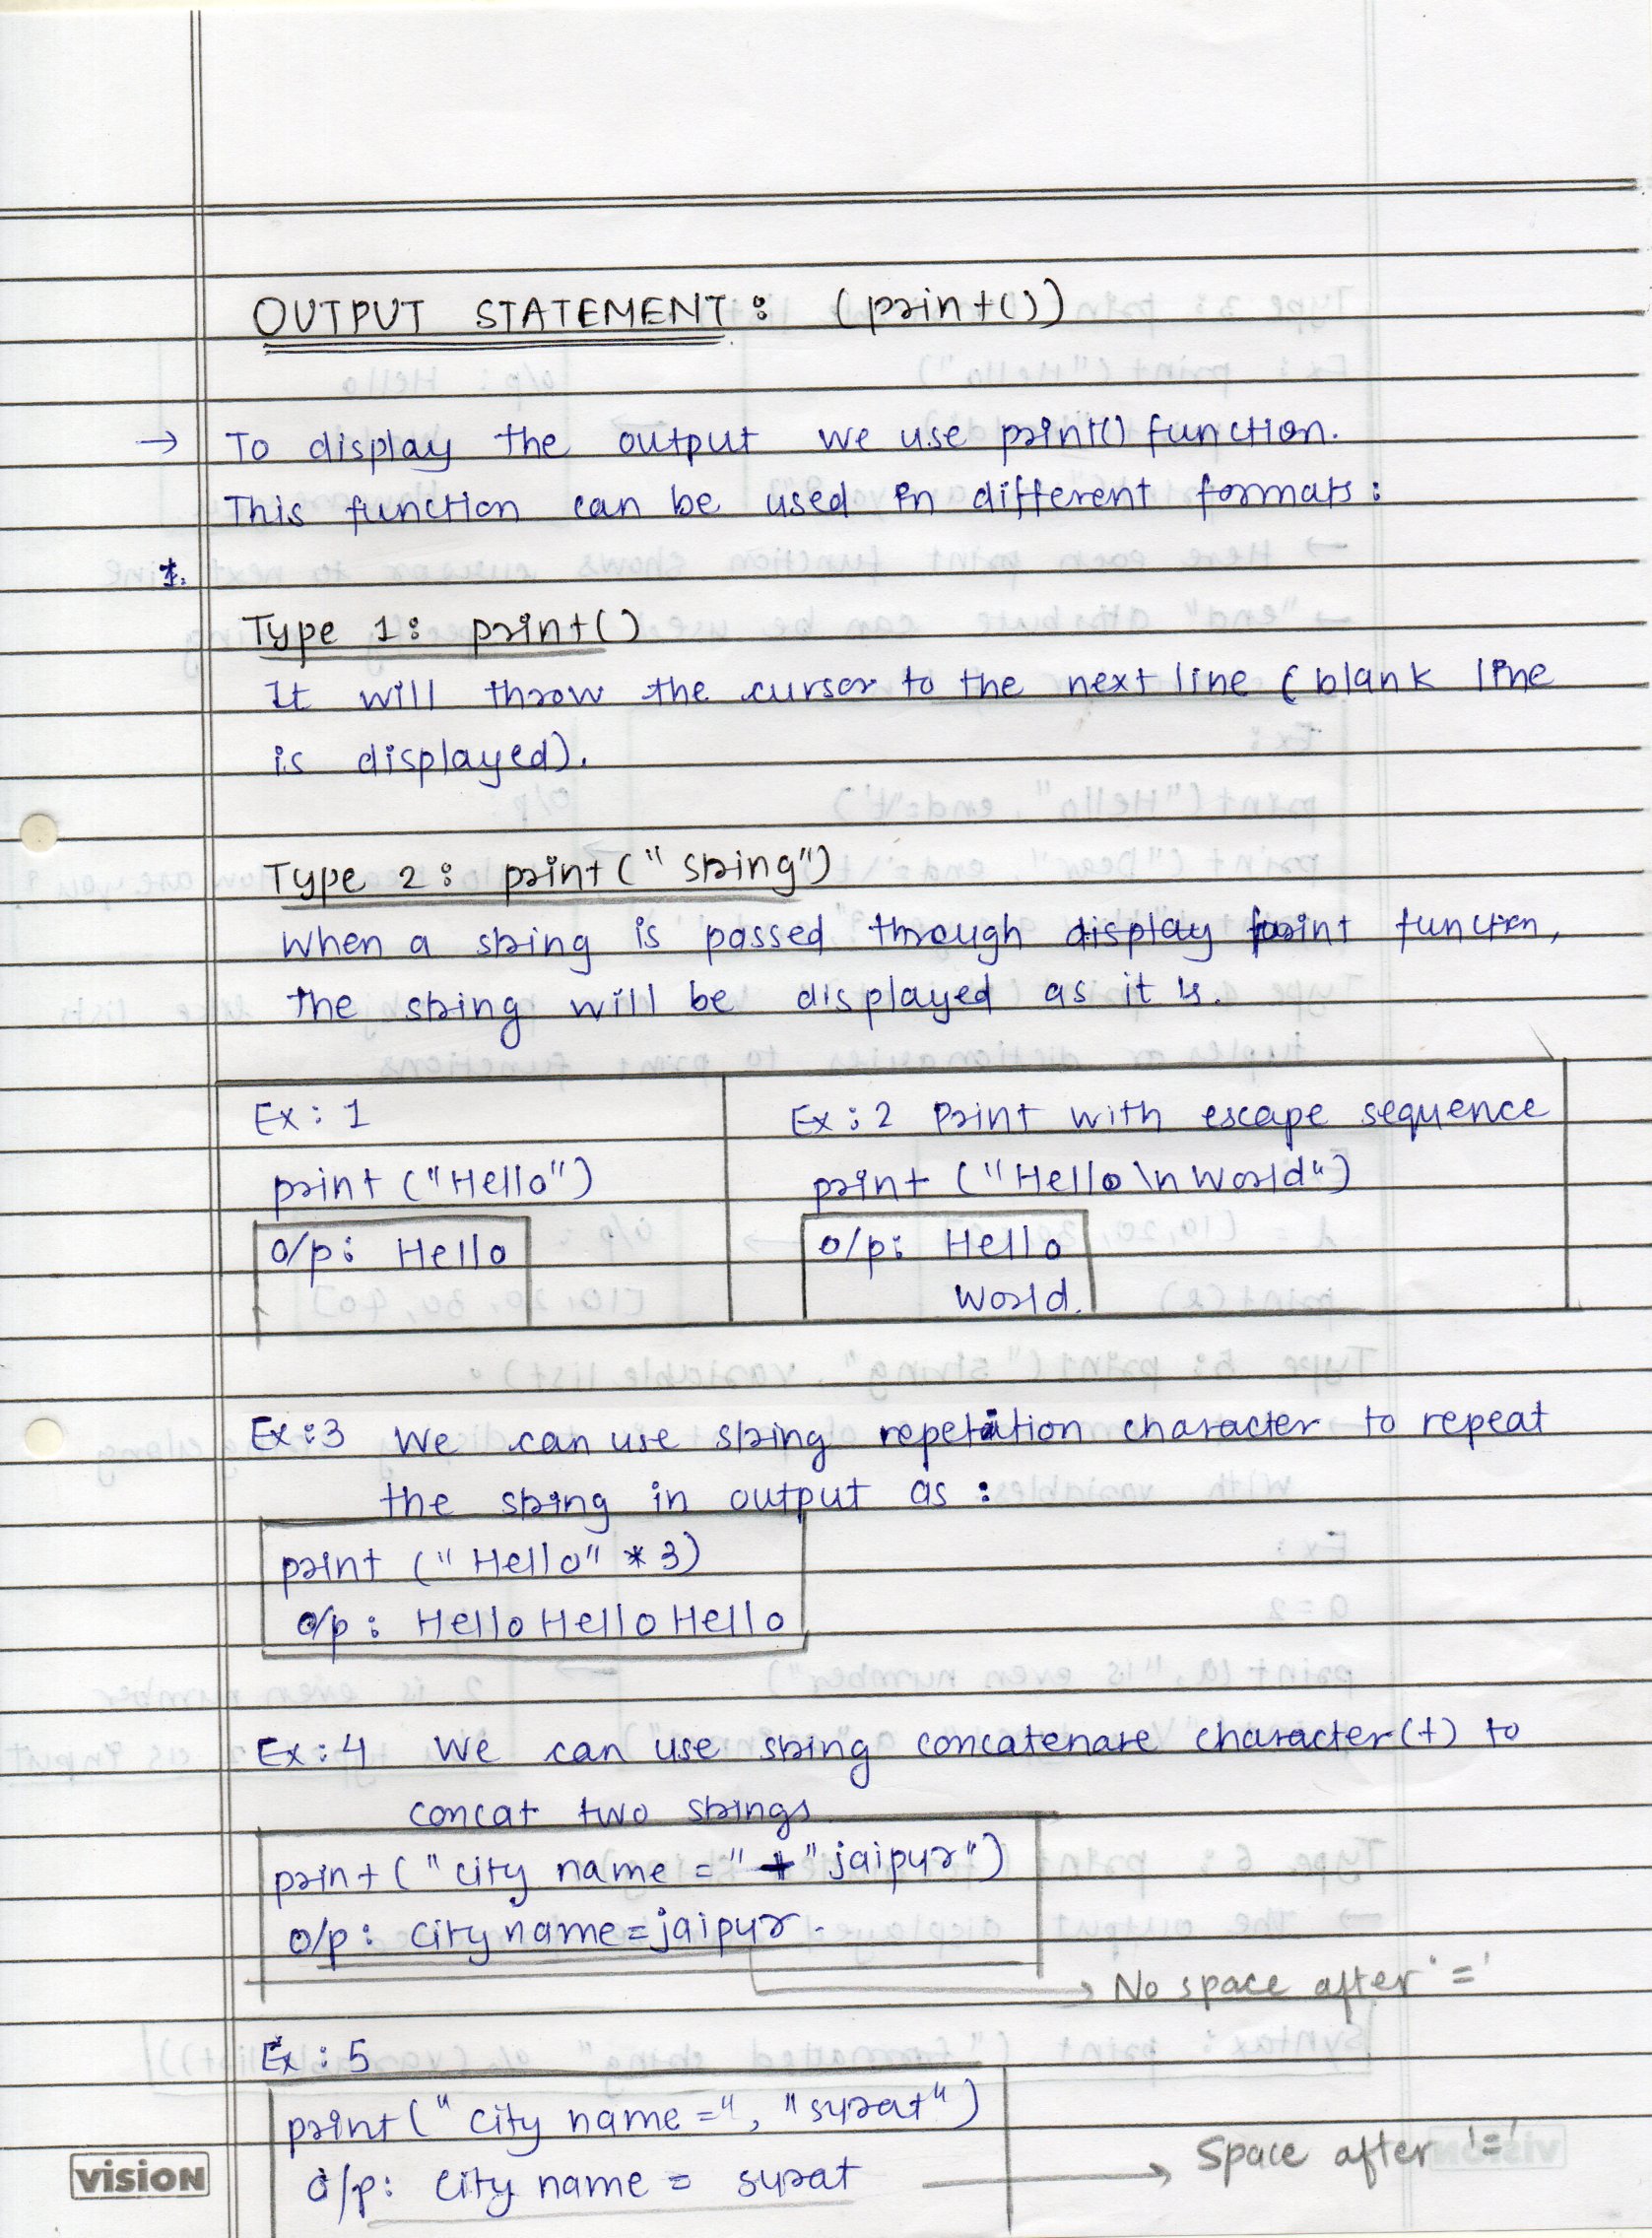 OUTPUT STATEMENT: (print())
→ To display the output we use print() function.
This function can be used in different formats:
1.
Type 1: print()
It will throw the cursor to the next line (blank line
is displayed).
Type 2: print("string")
When a string is passed through display print function,
the string will be displayed as it is.
Ex: 1
print ("Hello")
o/p: Hello
Ex: 2 Print with escape sequence
print ("Hello \n World")
o/p: Hello
World.
Ex: 3 We can use string repetition character to repeat
the string in output as :
print ("Hello" * 3)
o/p: Hello Hello Hello
Ex: 4 We can use string concatenare character (+) to
concat two strings
print ("city name =" + "jaipur")
o/p: city name=jaipur.
→ No space after '='
Ex: 5
print ("city name =", "surat")
o/p: city name = surat
→ Space after '='
vision